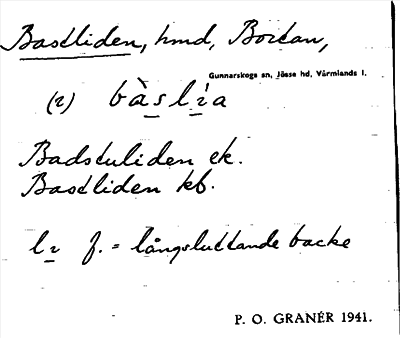 Bastliden, hmd, Bortan,
Gunnarskogs sn, Jösse hd, Värmlands l.
(2) bàslia
Badstuliden ek.
Bastliden kb.
l= f. = långsluttande backe
P. O. GRANÉR 1941.